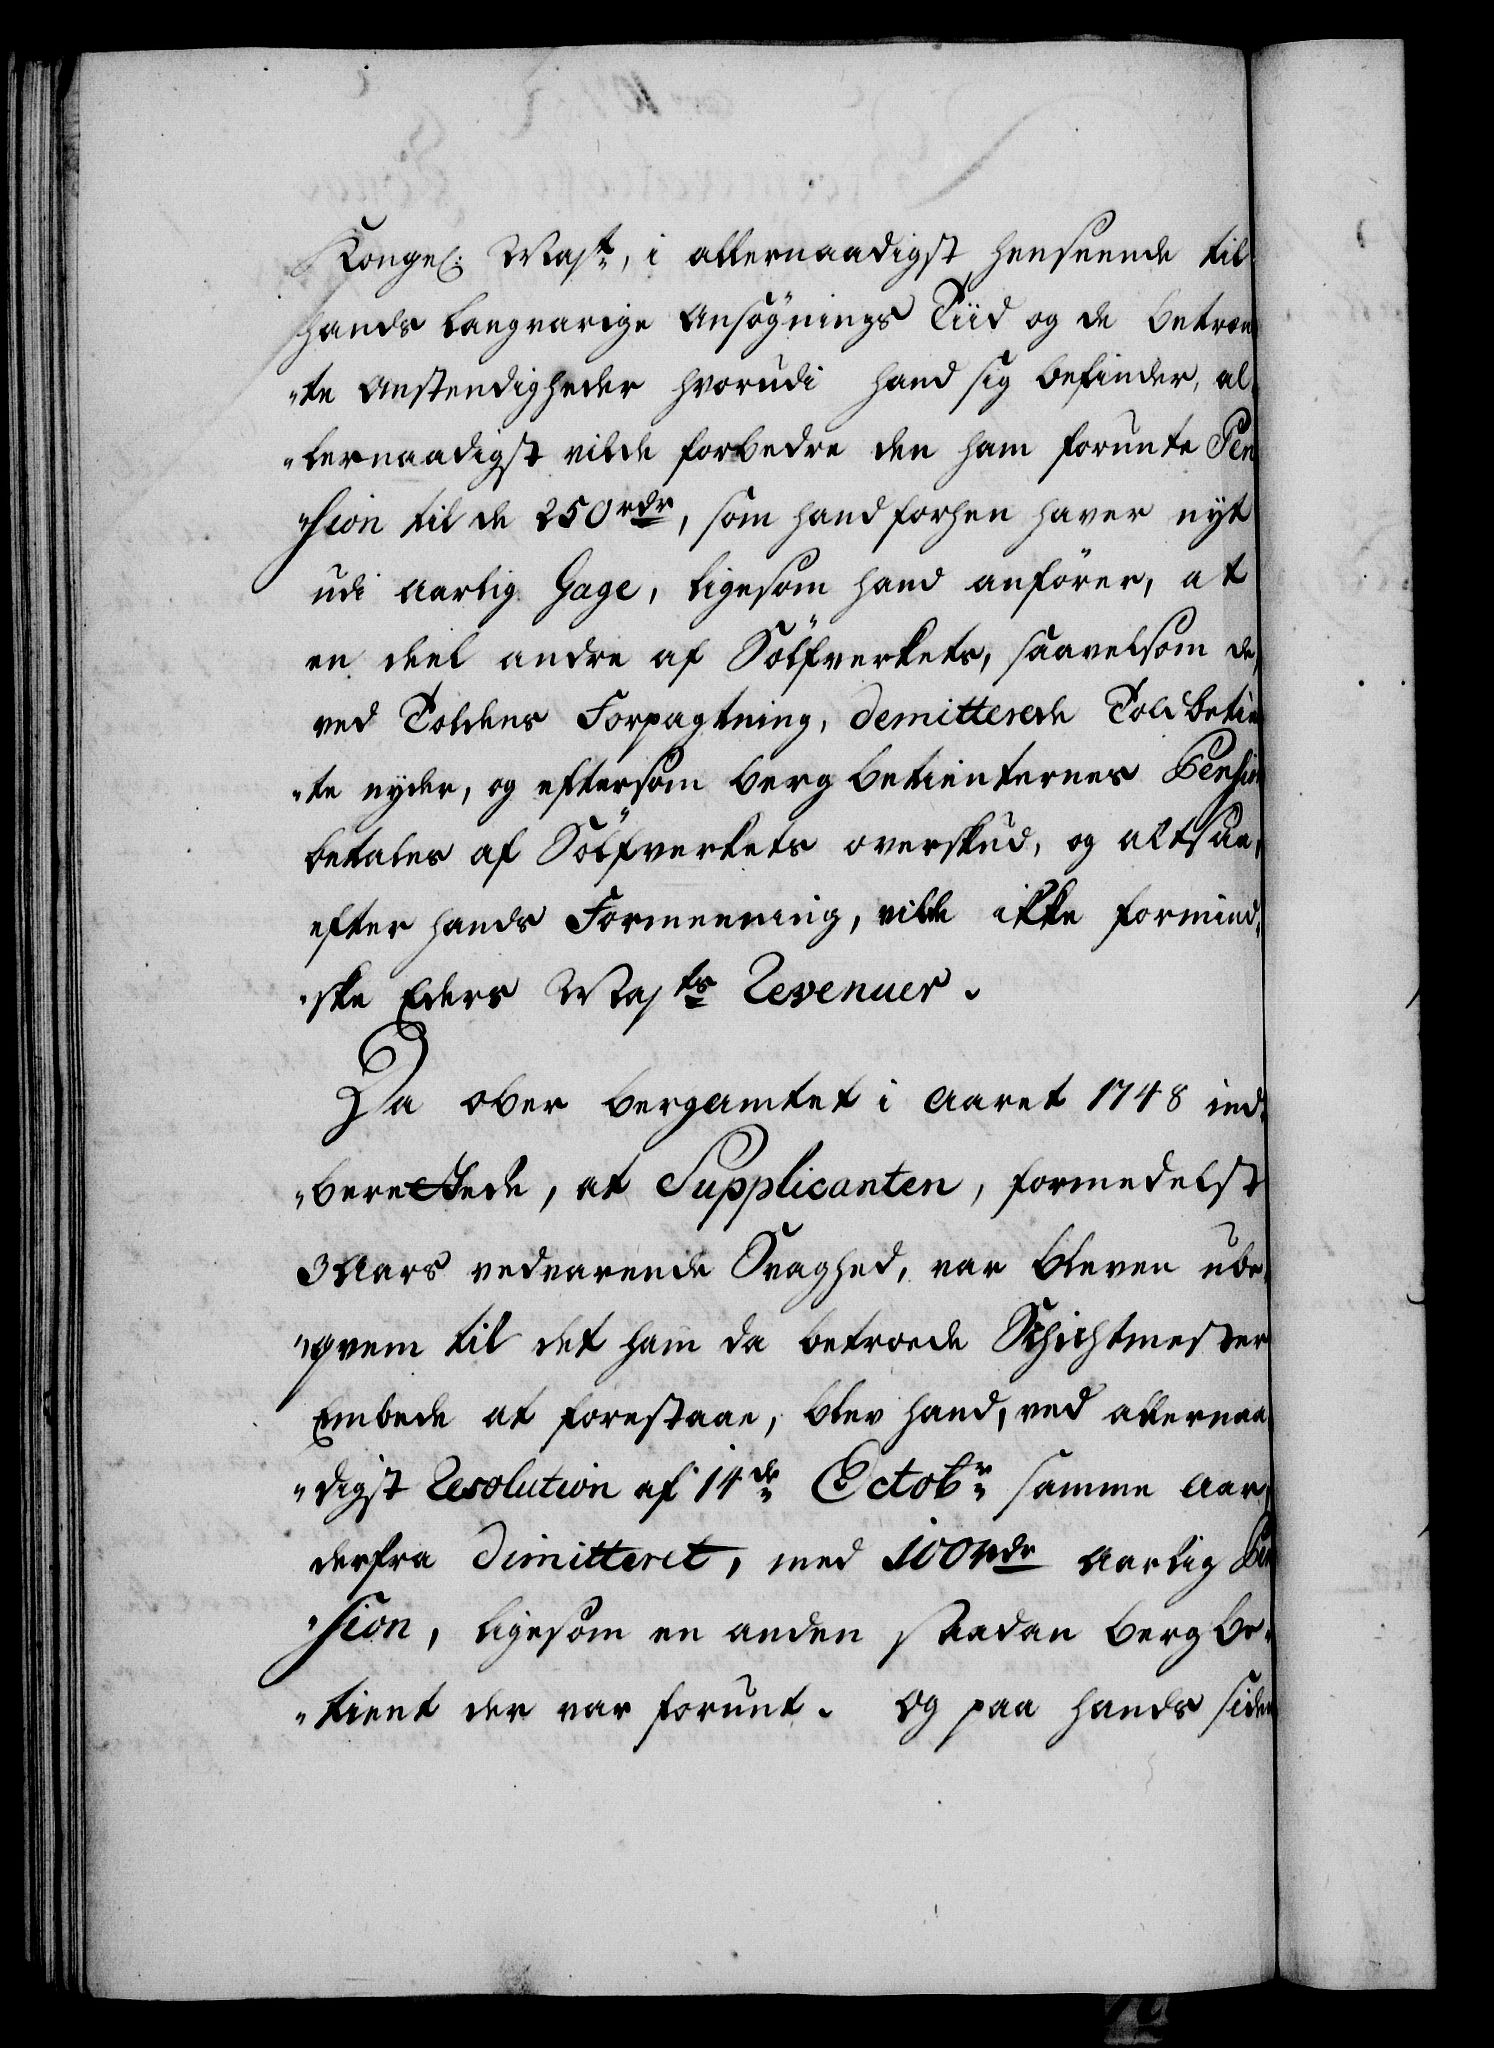 Kongel: Mayt, i allernaadigst henseende til
hands langvarige Ansøgnings Tiid og de betræn
"te Omstendigheder hvorudi hand sig befinder, al„
"lernaadigst vilde forbedre den ham forunte Pen
"sion til de 250 rdr, som hand forhen haver nydt
udi aarlig Gage, ligesom hand anfører, at
en deel andre af Sölfverkets, saavelsom de,
ved Toldens Forpagtning, demitterede Told betien
"te nyder, og eftersom berg betienternes Pension
betales af Sölfverkets overskud, og altsaa,
efter hands Formeening, vilde ikke formind„
"ske Eders Mayts Revenuer.
Da Over bergamtet i Aaret 1748 ind„
"berettede, at Supplicanten, formedelst
3 Aars vedvarende Svaghed, var bleven ube„
"qvem til det ham da betroede Schichtmester
Embede at forestaae, blev hand, ved allernaa
"digst Resolution af 14de Octobr samme Aar
derfra dimitteret, med 100 rdr Aarlig Pen
"sion, ligesom en anden saadan berg be„
"tient der var forunt. Og paa hands siden